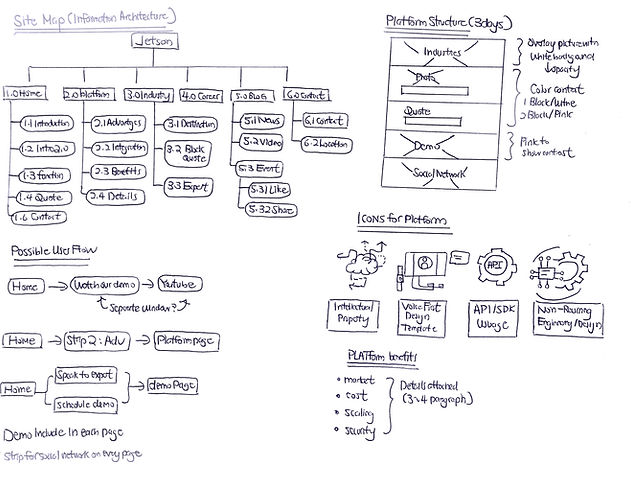 Site Map (Information Architecture)
Jetson
1.0 Home
2.0 Platform
3.0 Industry
4.0 Career
5.0 Blog
6.0 Contact
1.1 Introduction
1.2 Intro2.0
1.3 Function
1.4 Quote
1.6 Contact
2.1 Advantages
2.2 Integration
2.3 Benefits
2.4 Details
3.1 Destination
3.2 Block Quote
3.3 Expert
5.1 News
5.2 Video
5.3 Event
5.31 Like
5.32 Share
6.1 Contact
6.2 Location
Possible User Flow
Home
Watch our demo
Youtube
Seperate window?
Home
Strip 2: Adv
Platform page
Home
Speak to expert
schedule demo
demo Page
Demo Include In each page
Strip for social network on every page
Platform Structure (3days)
Industries
Data
Quote
Demo
Social Network
Overlay picture with
White body and
opacity
Color contast
1 Black/White
2 Black/Pink
Pink to
show contast
Icons for Platform
API
Intellectual
Property
Voice First
Design
Template
API/SDK
Usage
Non-Reuring
Enginerry/Design
PLatform benefits
• market
• cost
• scaling
• security
Details attached
(3~4 paragraph)